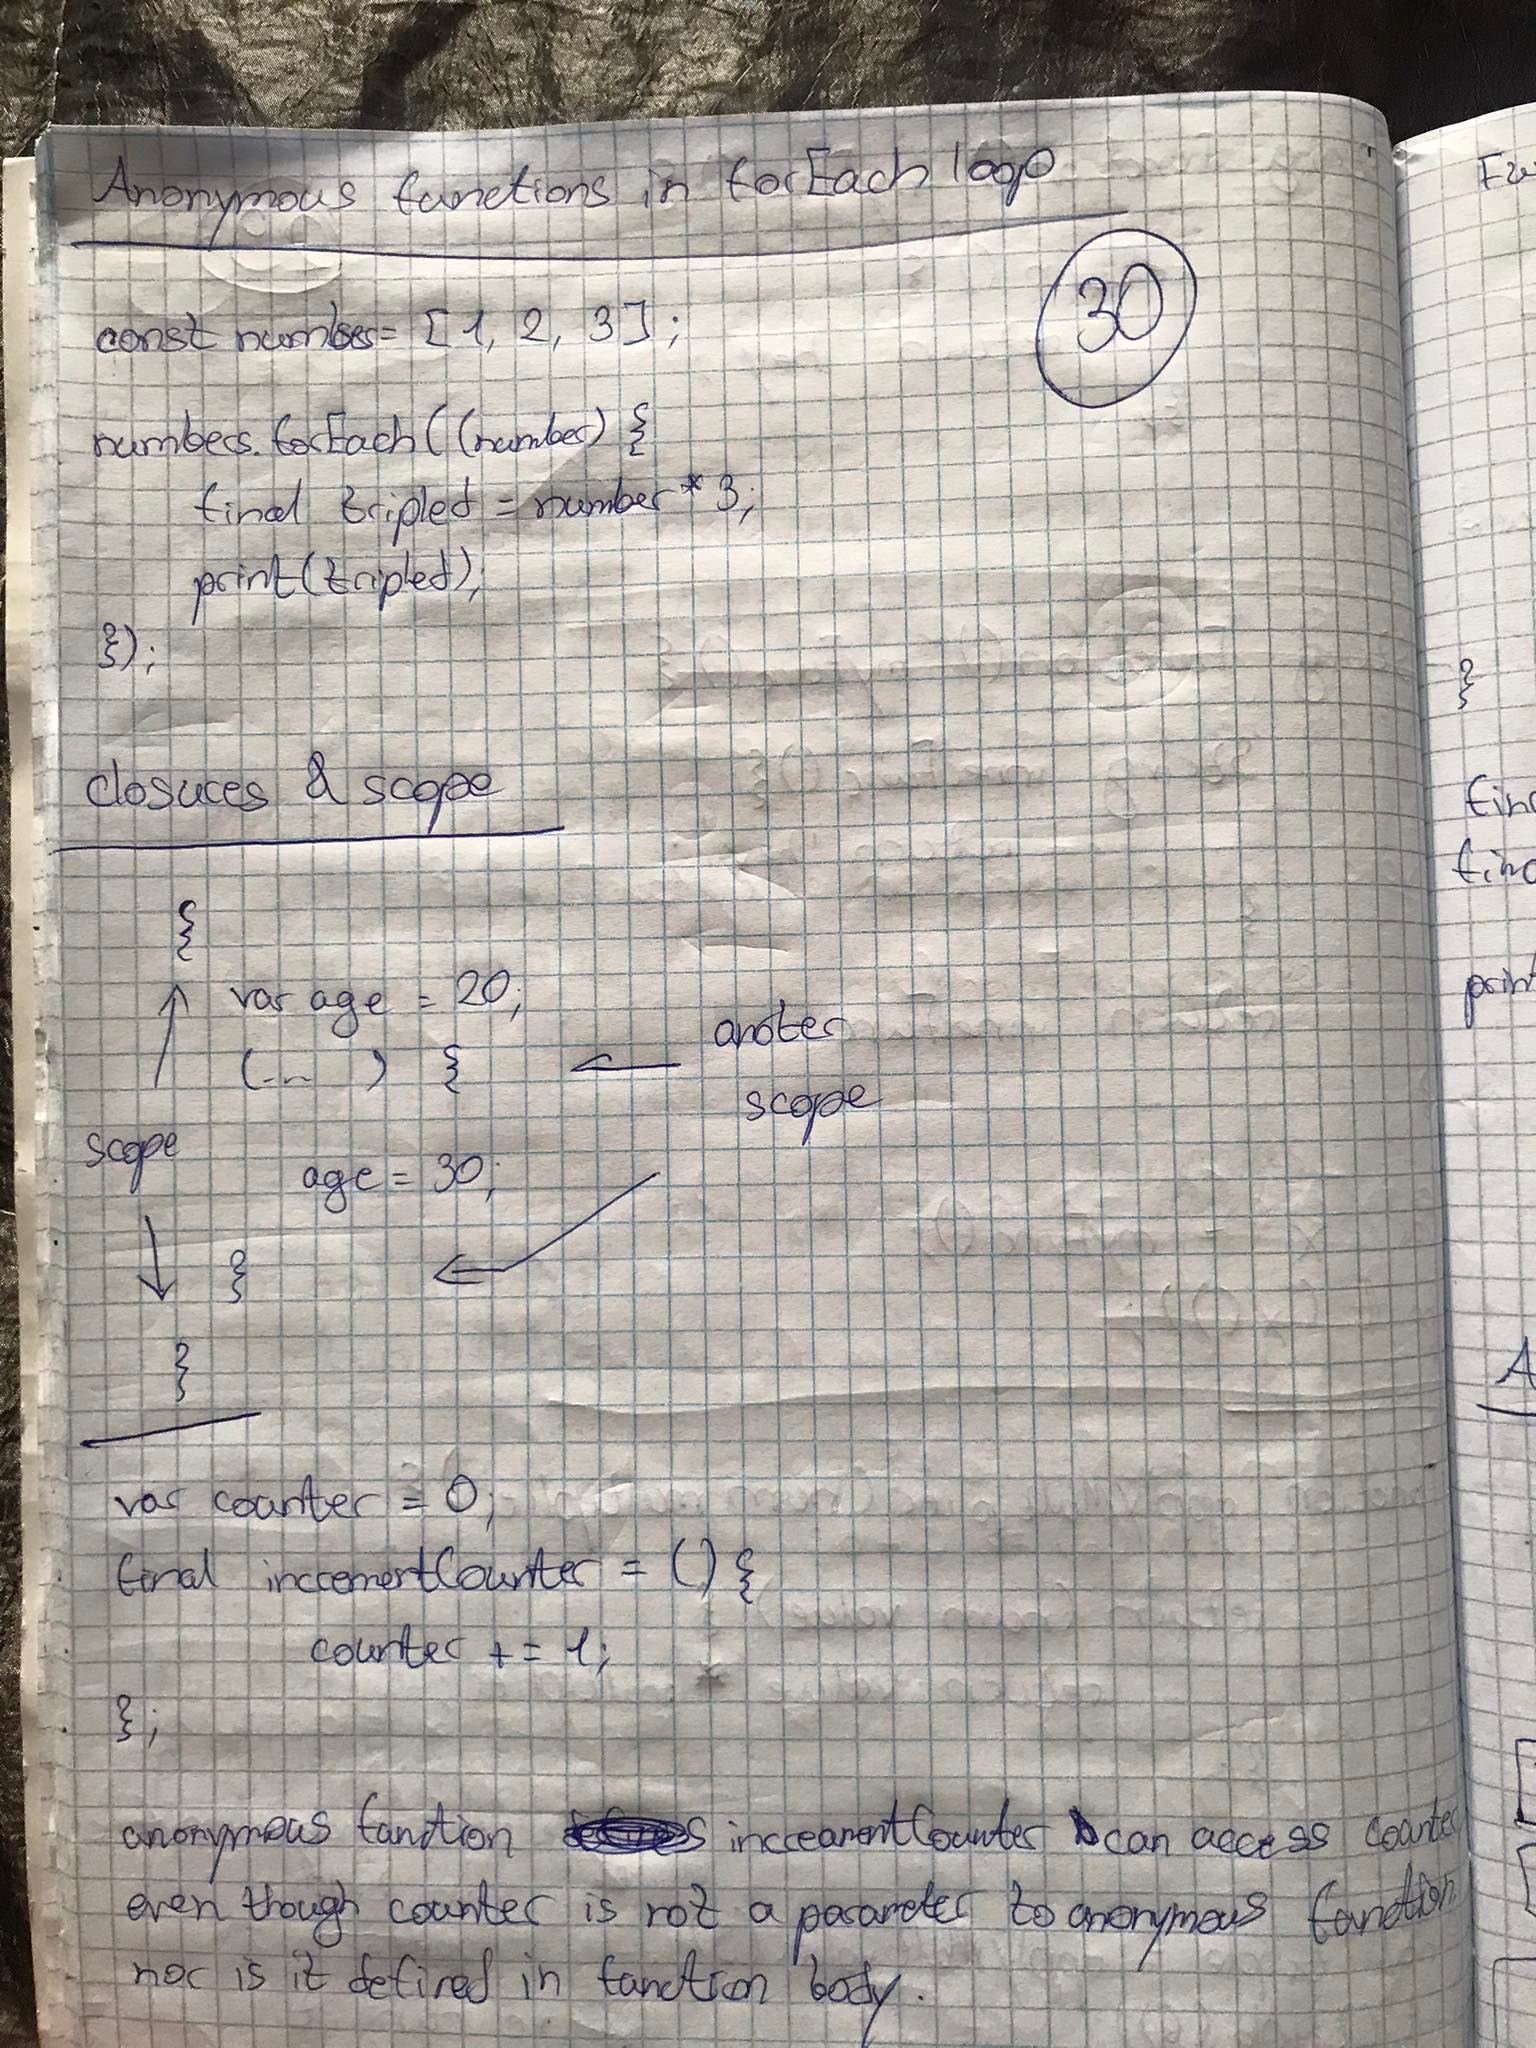 Anonymous functions in forEach loop
30
const numbers= [1, 2, 3];
numbers.forEach((number) {
final tripled = number * 3;
print(tripled);
});
closures & scope
{
var age = 20;
(... ) {
anoter
scope
scope
age = 30;
}
}
var counter = 0;
final incrementCounter = () {
counter += 1;
};
anonymous function increamentCounter can access counter
even though counter is not a parameter to anonymous function
nor is it defined in function body.
}
print
A